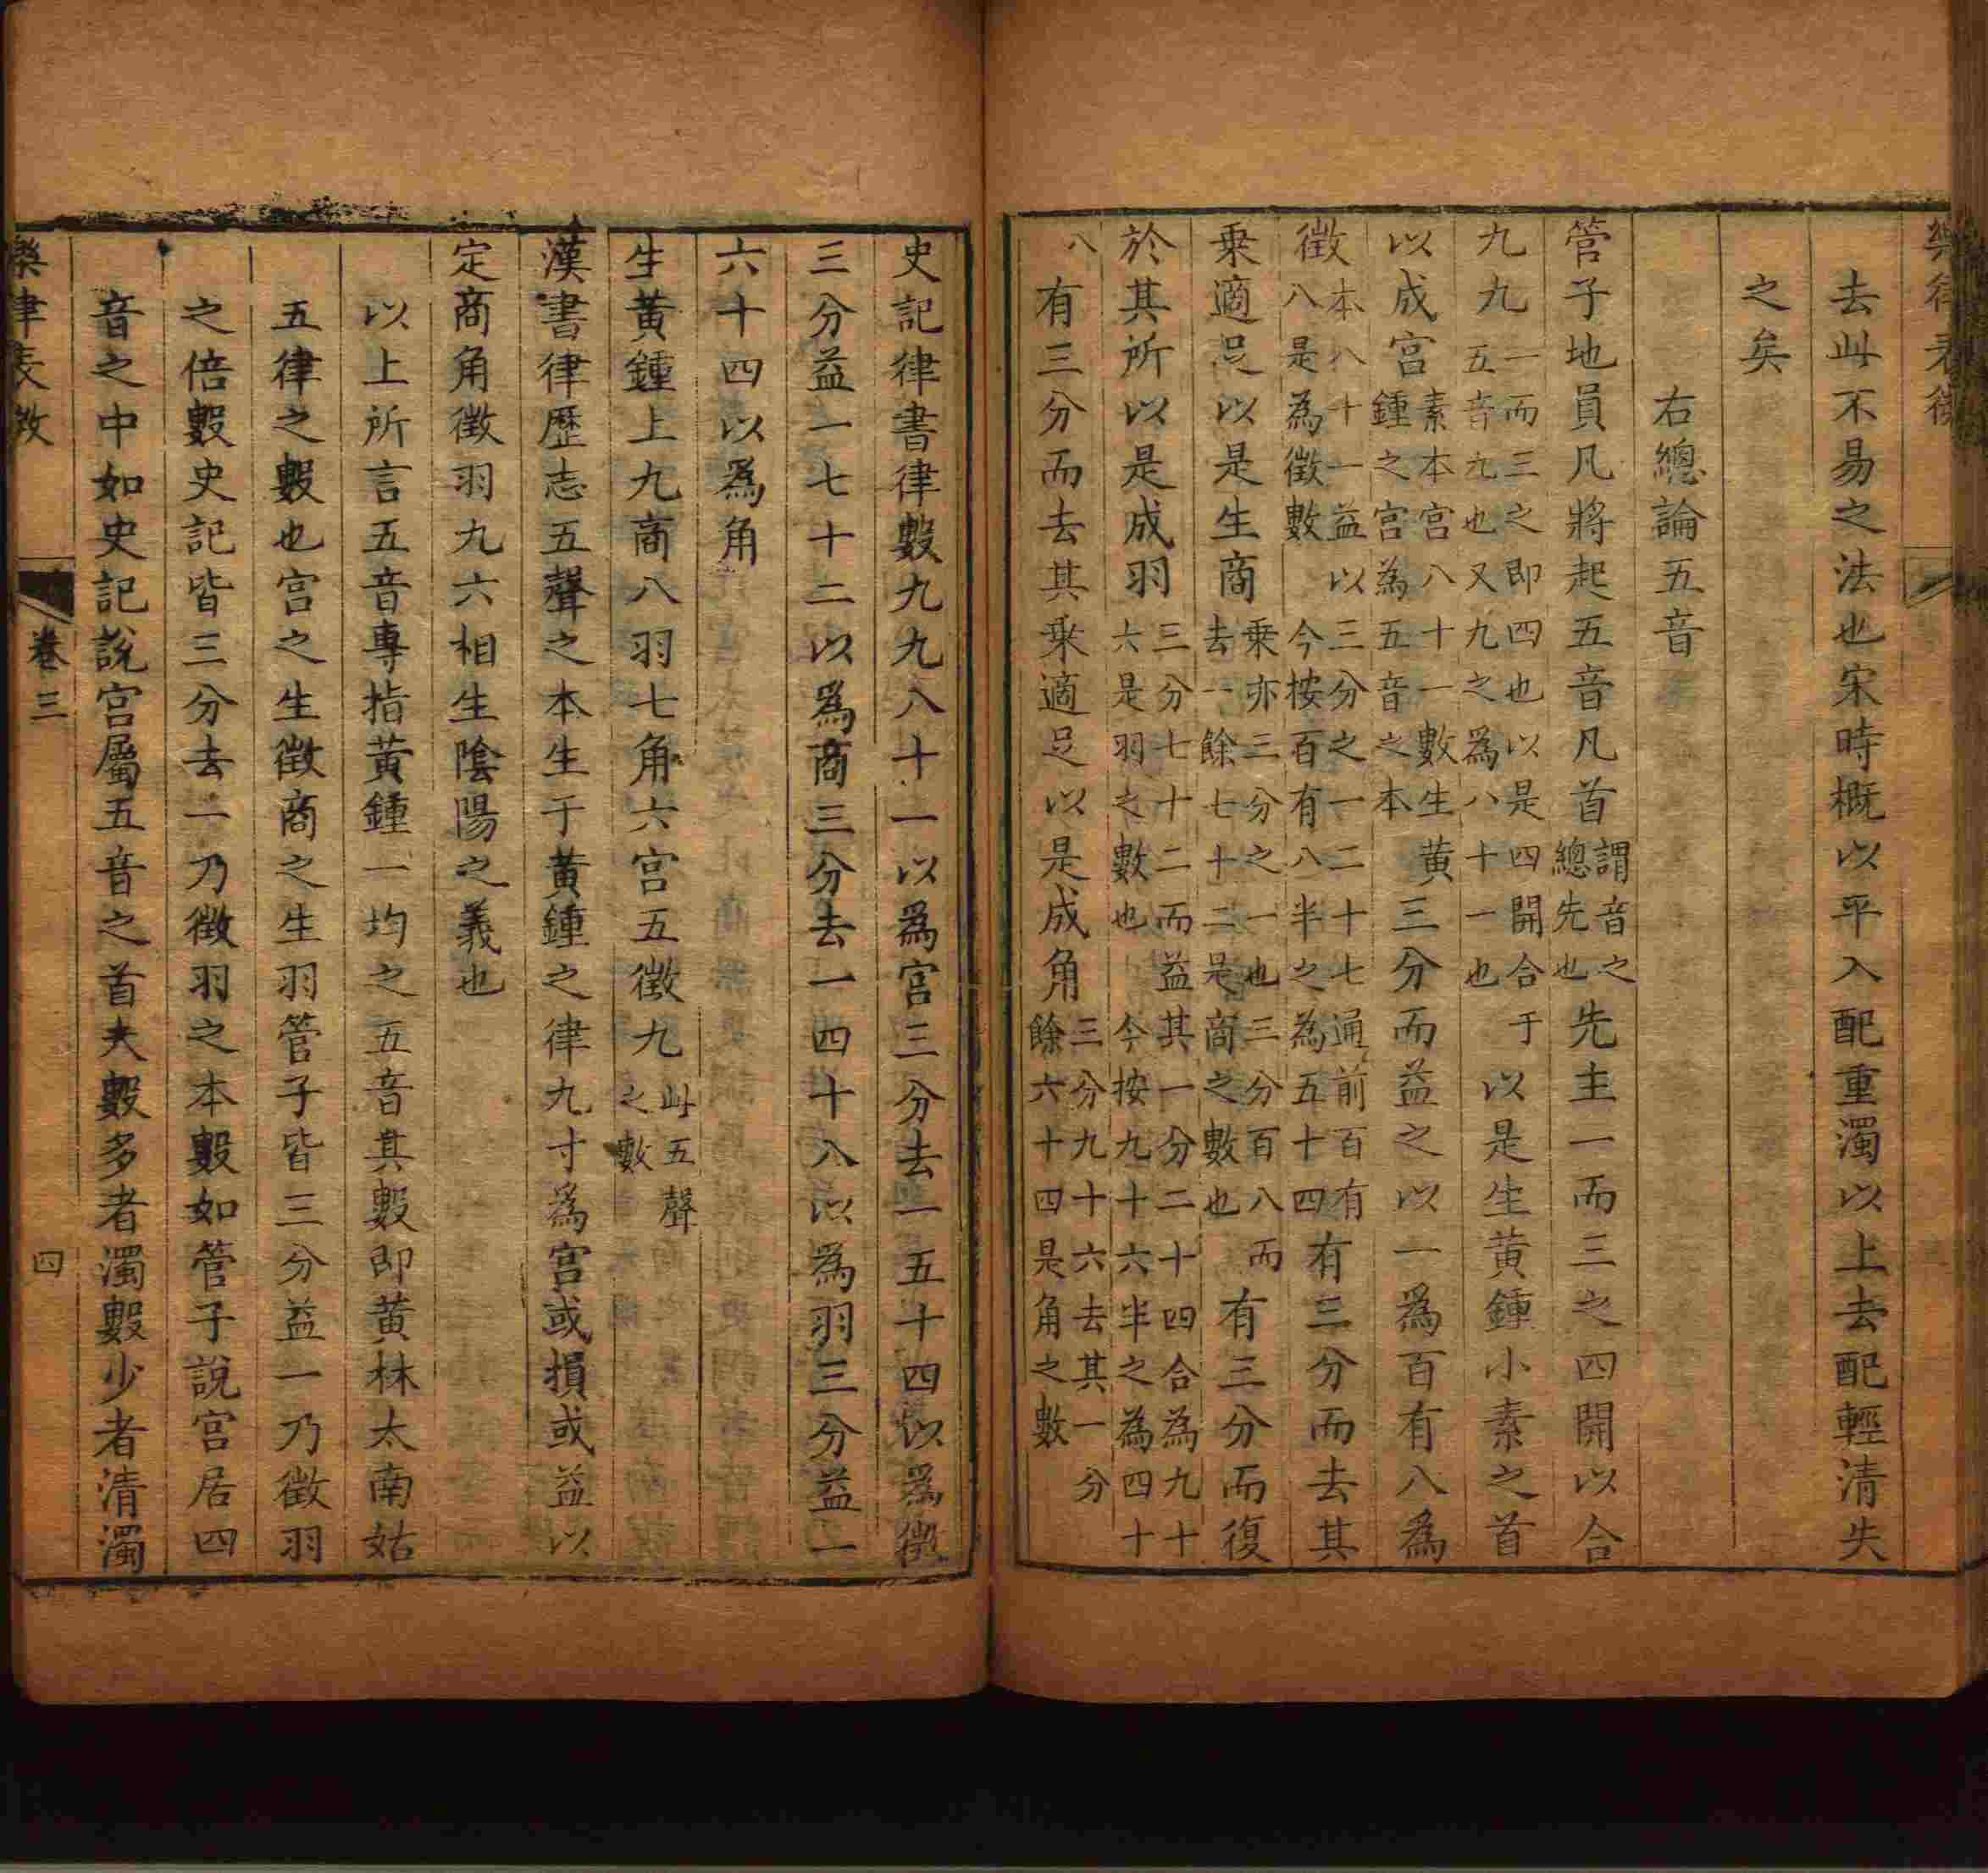 樂律表微
去此不易之法也宋時概以平入配重濁以上去配輕清失
之矣
右總論五音
管子地員凡將起五音凡首謂音之總先也先主一而三之四開以合
九九一而三之即四也以是四開合于五音九也又九九之為八十一也以是生黃鍾小素之首
以成宮素本宮八十一數生黃鍾之宮為五音之本三分而益之以一爲百有八爲
徵本八十一益以三分之一二十七通前百有八是為徵數今按百有八半之為五十四有三分而去其
乗適足以是生商乗亦三分之一也三分百八而去一餘七十二是商之數也有三分而復
於其所以是成羽三分七十二而益其一分二十四合為九十六是羽之數也今按九十六半之為四十
八有三分而去其乗適足以是成角三分九十六去其一分餘六十四是角之數
史記律書律數九九八十一以爲宮三分去一五十四以爲徵
三分益一七十二以爲商三分去一四十八以爲羽三分益一
六十四以爲角
生黃鍾上九商八羽七角六宮五徵九此五聲之數
漢書律歷志五聲之本生于黃鍾之律九寸爲宮或損或益以
定商角徵羽九六相生陰陽之義也
以上所言五音專指黃鍾一均之五音其數即黃林太南姑
五律之數也宮之生徵商之生羽管子皆三分益一乃徵羽
之倍數史記皆三分去一乃徵羽之本數如管子說宮居四
音之中如史記說宮屬五音之首夫數多者濁數少者清濁
樂律表微
卷三
四